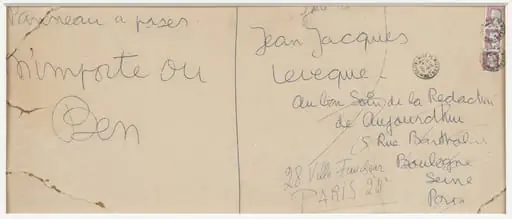 Panneau a poser
n'importe ou
Ben
Jean Jacques
Leveque
au bon Soin de la Redaction
de Aujourdhui
5 Rue
Boulogne
Seine
28 Villa
PARIS